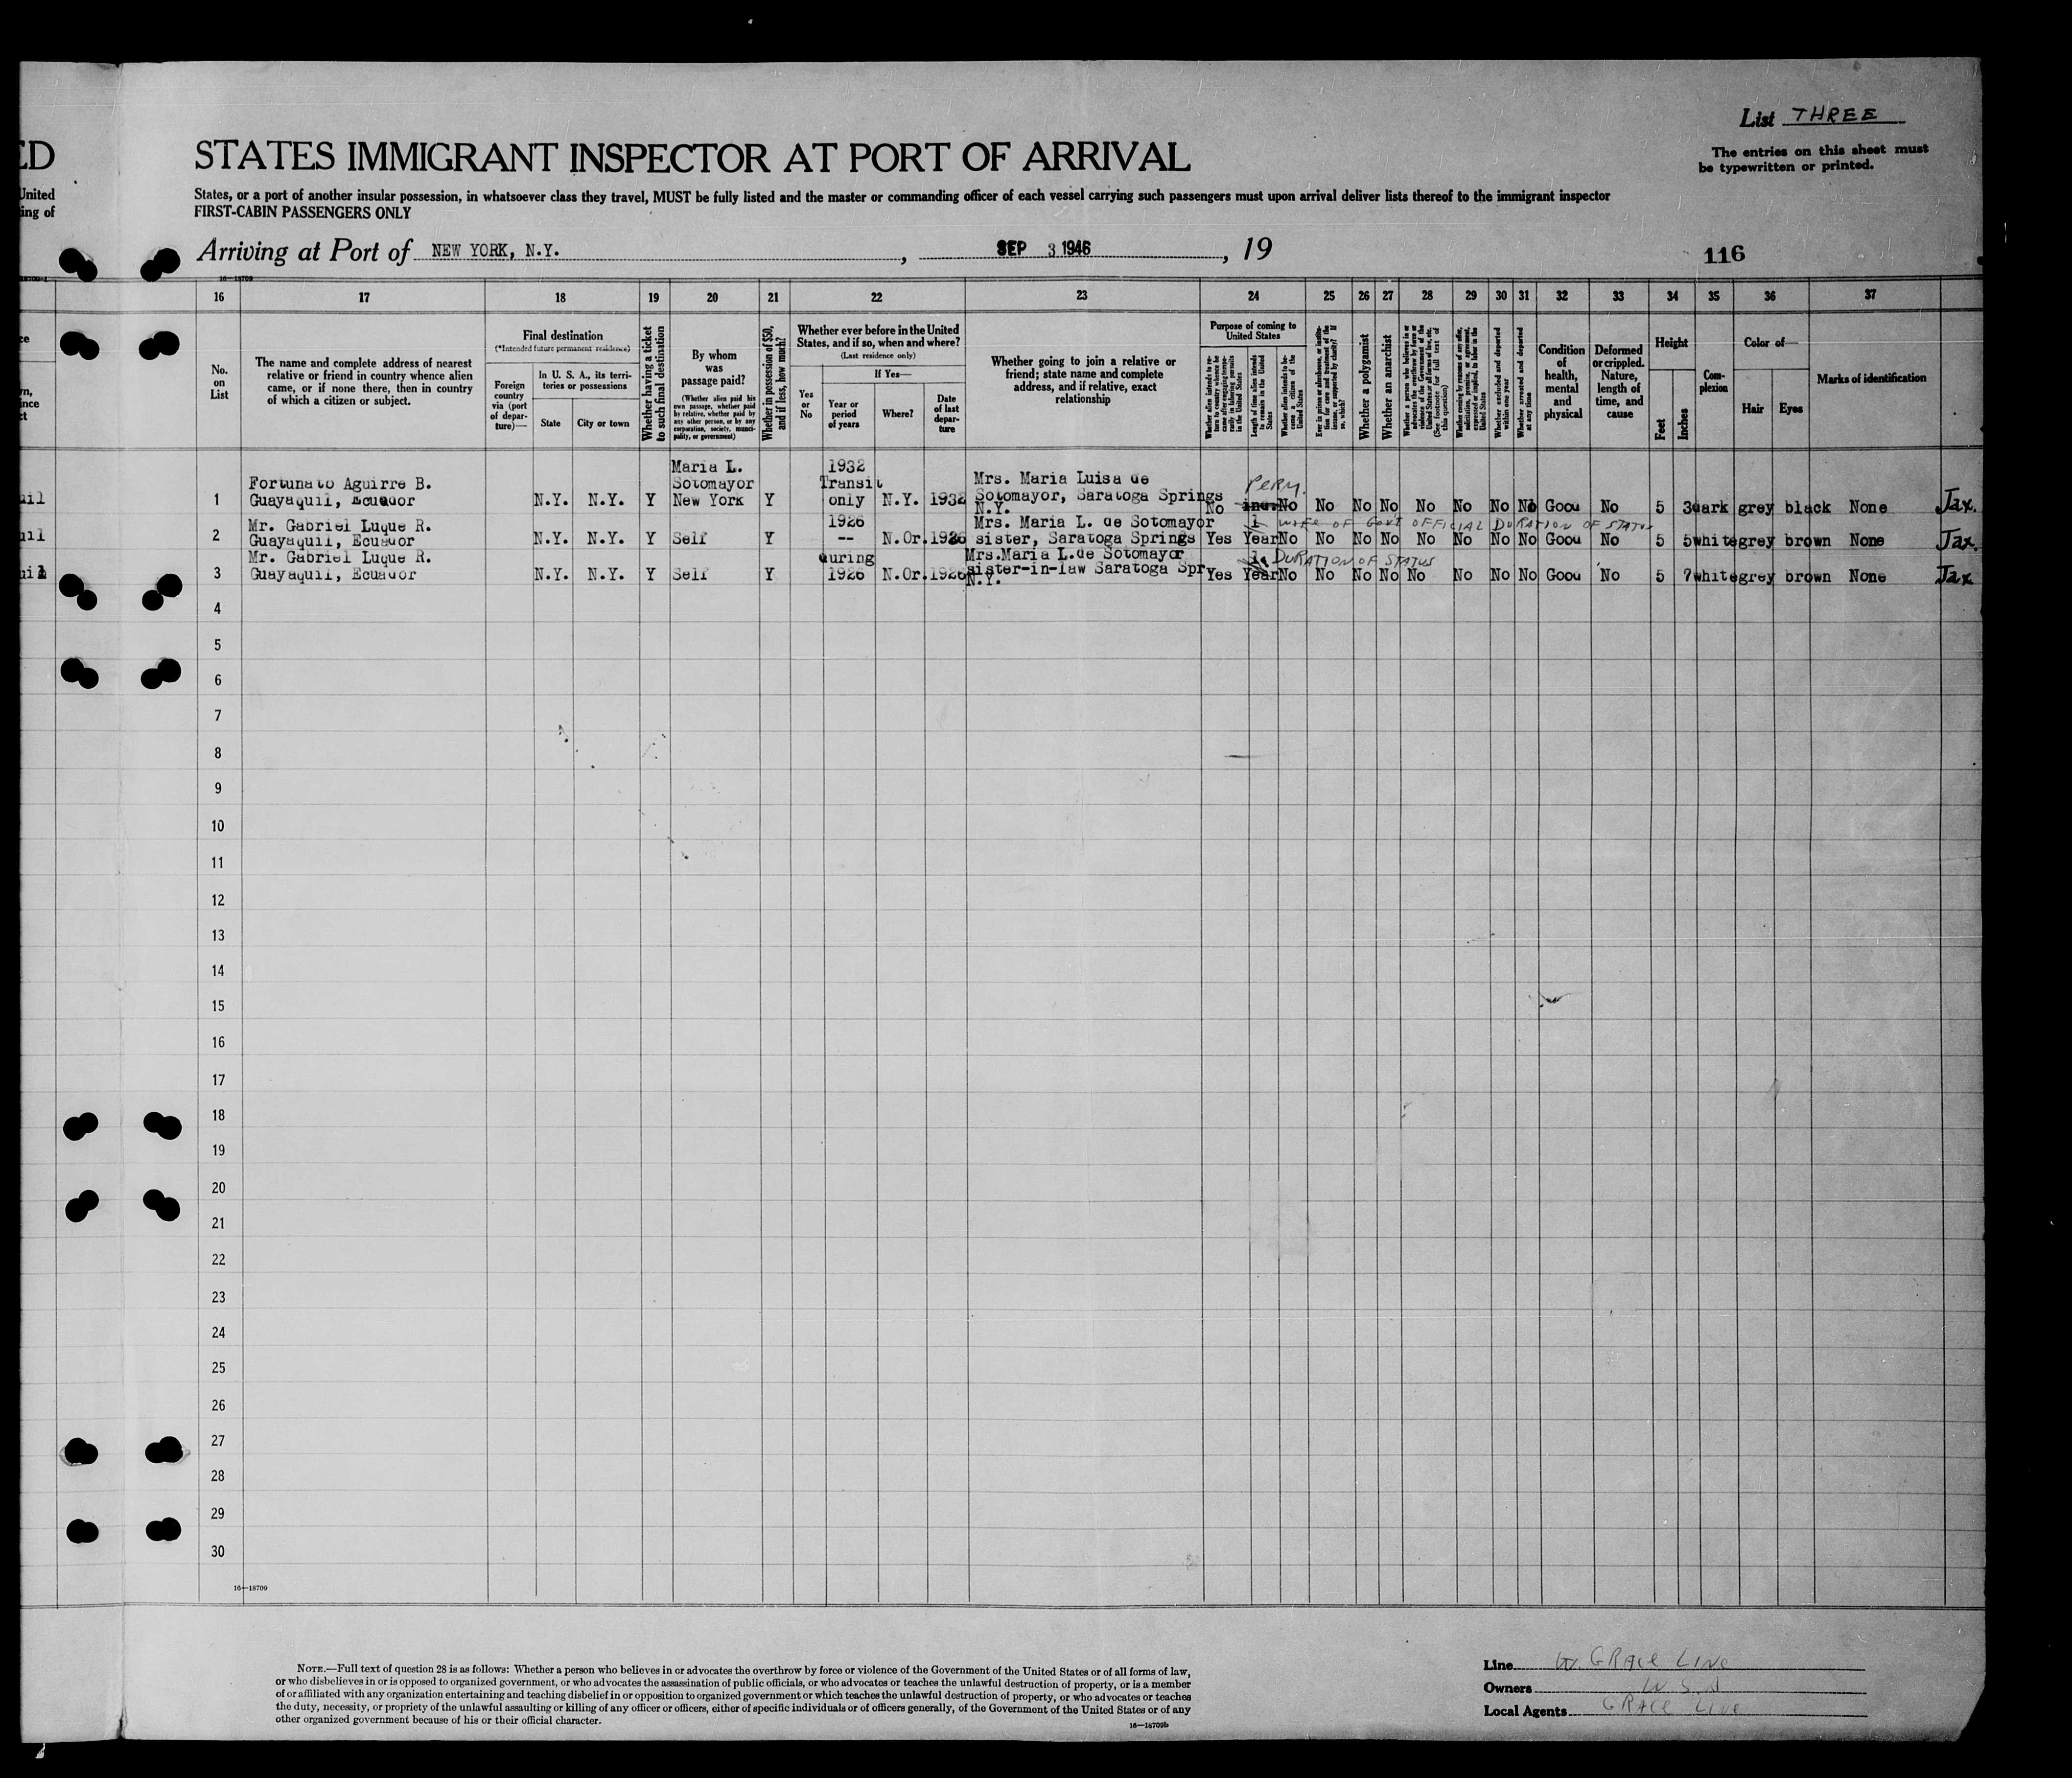 List THREE
The entries on this sheet must
be typewritten or printed.
ED
STATES IMMIGRANT INSPECTOR AT PORT OF ARRIVAL
United
ing of
States, or a port of another insular possession, in whatsoever class they travel, MUST be fully listed and the master or commanding officer of each vessel carrying such passengers must upon arrival deliver lists thereof to the immigrant inspector
FIRST-CABIN PASSENGERS ONLY
Arriving at Port of NEW YORK, N.Y. , SEP 3 1946 , 19
116
16—18709
16 17 18 19 20 21 22 23 24 25 26 27 28 29 30 31 32 33 34 35 36 37
No.
on
List
The name and complete address of nearest
relative or friend in country whence alien
came, or if none there, then in country
of which a citizen or subject.
Final destination
(*Intended future permanent residence)
Foreign
country
via (port
of depar-
ture)—
In U. S. A., its terri-
tories or possessions
State
City or town
Whether having a ticket
to such final destination
By whom
was
passage paid?
(Whether alien paid his
own passage, whether paid
by relative, whether paid by
any other person, or by any
corporation, society, munici-
pality, or government)
Whether in possession of $50,
and if less, how much?
Whether ever before in the United
States, and if so, when and where?
(Last residence only)
Yes
or
No
If Yes—
Year or
period
of years
Where?
Date
of last
depar-
ture
Whether going to join a relative or
friend; state name and complete
address, and if relative, exact
relationship
Purpose of coming to
United States
Length of time alien intends
to remain in the United
States
Whether alien intends to be-
come a citizen of the
United States
Whether a polygamist
Whether an anarchist
(See footnote for full text of
this question)
Whether excluded and deported
within one year
Whether arrested and deported
at any time
Condition
of
health,
mental
and
physical
Deformed
or crippled.
Nature,
length of
time, and
cause
Height
Feet
Inches
Com-
plexion
Color of—
Hair
Eyes
Marks of identification
1
Fortunato Aguirre B.
Guayaquil, Ecuador
N.Y. N.Y. Y
Maria L.
Sotomayor
New York
Y
1932
Transit
only
N.Y. 1932
Mrs. Maria Luisa de
Sotomayor, Saratoga Springs
N.Y.
PERM.
No No No No No No No No No Good No 5 3 dark grey black None Jax.
2
Mr. Gabriel Luque R.
Guayaquil, Ecuador
N.Y. N.Y. Y Self Y
1926
--
N.Or. 1926
Mrs. Maria L. de Sotomayor
sister, Saratoga Springs
1 WIFE OF GOVT OFFICIAL DURATION OF STATUS
Yes Year No No No No No No No No Good No 5 5 white grey brown None Jax.
3
Mr. Gabriel Luque R.
Guayaquil, Ecuador
N.Y. N.Y. Y Self Y
during
1926
N.Or. 1926
Mrs.Maria L.de Sotomayor
sister-in-law Saratoga Spr
N.Y.
DURATION OF STATUS
Yes Year No No No No No No No No Good No 5 7 white grey brown None Jax
4
5
6
7
8
9
10
11
12
13
14
15
16
17
18
19
20
21
22
23
24
25
26
27
28
29
30
16—18709
NOTE.—Full text of question 28 is as follows: Whether a person who believes in or advocates the overthrow by force or violence of the Government of the United States or of all forms of law,
or who disbelieves in or is opposed to organized government, or who advocates the assassination of public officials, or who advocates or teaches the unlawful destruction of property, or is a member
of or affiliated with any organization entertaining and teaching disbelief in or opposition to organized government or which teaches the unlawful destruction of property, or who advocates or teaches
the duty, necessity, or propriety of the unlawful assaulting or killing of any officer or officers, either of specific individuals or of officers generally, of the Government of the United States or of any
other organized government because of his or their official character.
16—18709b
Line GRACE LINE
Owners
Local Agents GRACE LINE